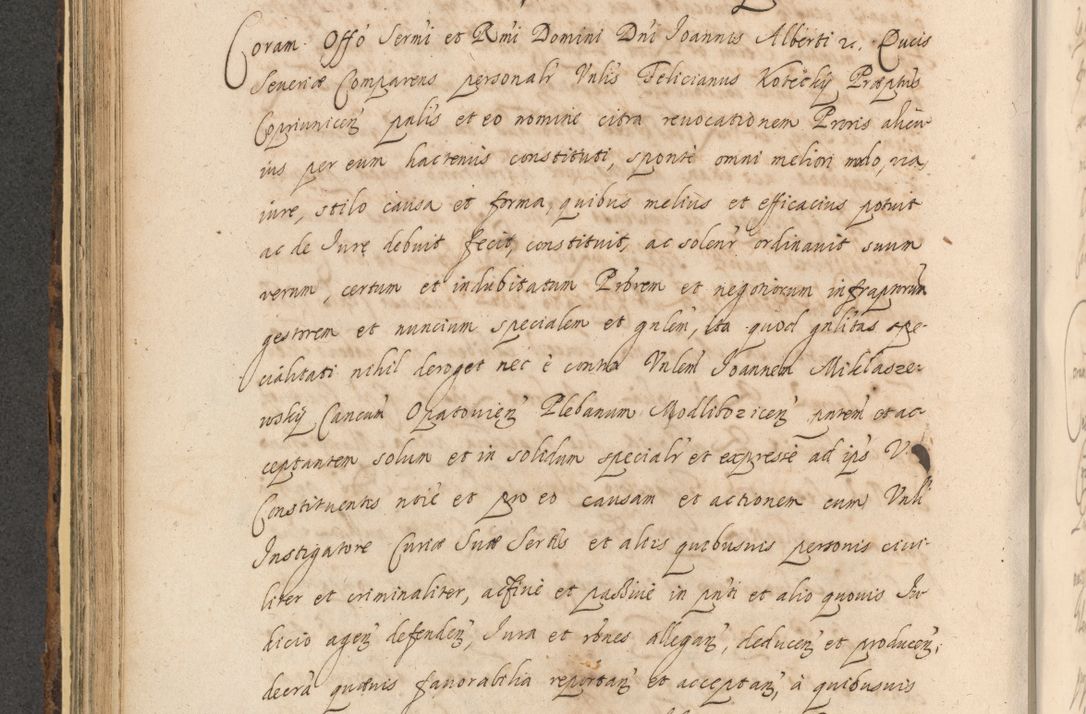 Coram Offo Sermi et Rmi Domini Dni Joannis Alberti &c. Ducis
Seueriæ Comparens personalr Vnlis Felicianus Kotečky Præptus
Copriunicen palis et eo nomine citra reuocationem Proris alicu
ius per eum hactenus constituti, sponte omni meliori modo, via
iure, stilo causa et forma, quibus melius et efficacius potuit
ac de Jure debuit fecit, constituit, ac solenr ordinauit suum
verum, certum et indubitatum Prorem et negotiorum infraptorum
gestorem et nuncium specialem et gnlem, ita quod gnlitas spe-
cialitati nihil deroget nec è contra Vnlem Joannem Miklasze-
wsky Cancum Opatouien Plebanum Modliborzicen pntem et ac-
ceptantem solum et in solidum specialr et expresse ad ips V.
Constituentis noie et pro eo causam et actionem cum Vnli
Instigatore Curiæ Suæ Sertis et aliis quibusuis personis ciui-
liter et criminaliter, actiue et passiue in pnti et alio quouis Ju
dicio agen defenden, Jura et rones allegan, deducen et producen,
decra quæuis fauorabilia reportan et acceptan, à quibusuis